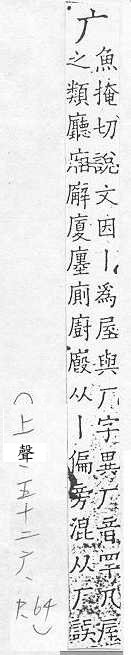 广
魚掩切說文因丨爲屋與厂字異厂音罕凡屋
之類廳廨廈廛廁廚廄从丨偏旁混从厂誤
（上聲、五十二广、P.64）